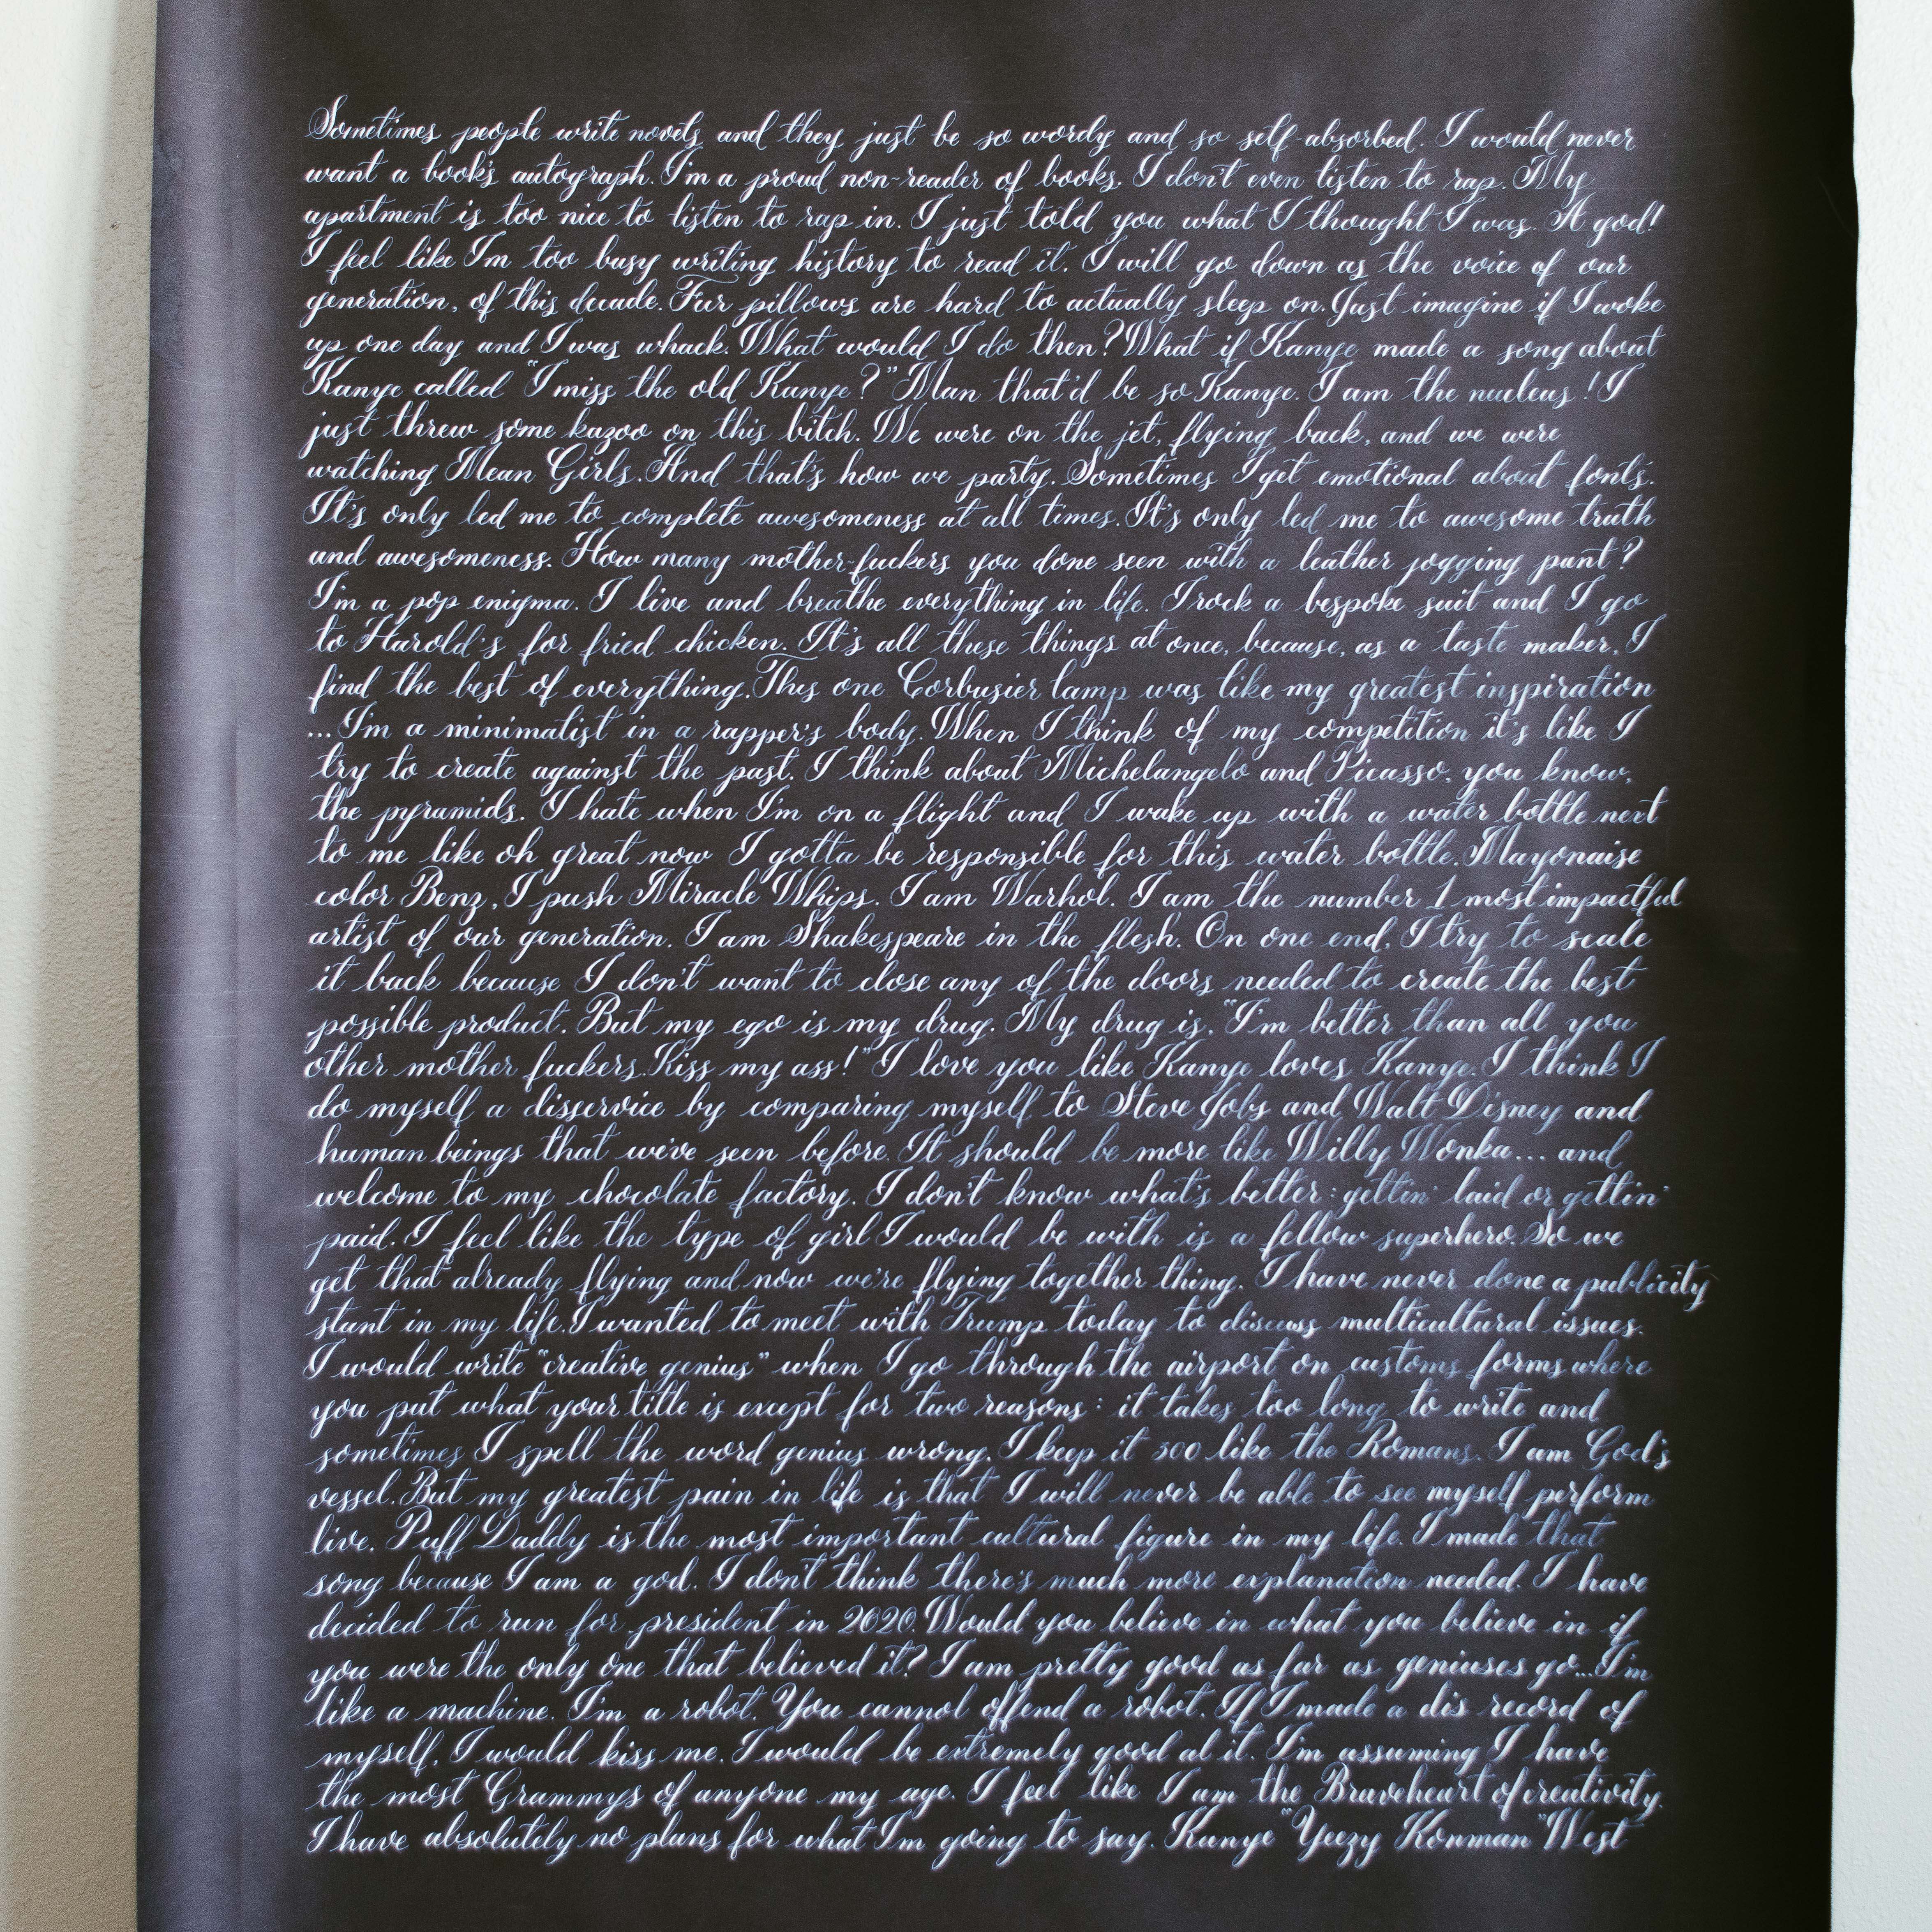 Sometimes people write novels and they just be so wordy and so self-absorbed. I would never
want a book's autograph. I'm a proud non-reader of books. I don't even listen to rap. My
apartment is too nice to listen to rap in. I just told you what I thought I was. A god!
I feel like I'm too busy writing history to read it. I will go down as the voice of our
generation, of this decade. Fur pillows are hard to actually sleep on. Just imagine if I woke
up one day and I was whack. What would I do then? What if Kanye made a song about
Kanye called "I miss the old Kanye?" Man that'd be so Kanye. I am the nucleus! I
just threw some kazoo on this bitch. We were on the jet, flying back, and we were
watching Mean Girls. And that's how we party. Sometimes I get emotional about fonts.
It's only led me to complete awesomeness at all times. It's only led me to awesome truth
and awesomeness. How many mother-fuckers you done seen with a leather jogging pant?
I'm a pop enigma. I live and breathe everything in life. I rock a bespoke suit and I go
to Harold's for fried chicken. It's all these things at once, because, as a taste maker, I
find the best of everything. This one Corbusier lamp was like my greatest inspiration
...I'm a minimalist in a rapper's body. When I think of my competition it's like I
try to create against the past. I think about Michelangelo and Picasso, you know,
the pyramids. I hate when I'm on a flight and I wake up with a water bottle next
to me like oh great now I gotta be responsible for this water bottle. Mayonaise
color Benz, I push Miracle Whips. I am Warhol. I am the number 1 most impactful
artist of our generation. I am Shakespeare in the flesh. On one end, I try to scale
it back because I don't want to close any of the doors needed to create the best
possible product. But my ego is my drug. My drug is, "I'm better than all you
other mother fuckers. Kiss my ass!" I love you like Kanye loves Kanye. I think I
do myself a disservice by comparing myself to Steve Jobs and Walt Disney and
human beings that we've seen before. It should be more like Willy Wonka... and
welcome to my chocolate factory. I don't know what's better: gettin' laid or gettin'
paid. I feel like the type of girl I would be with is a fellow superhero. So we
get that already flying and now we're flying together thing. I have never done a publicity
stunt in my life. I wanted to meet with Trump today to discuss multicultural issues.
I would write "creative genius" when I go through the airport on customs forms where
you put what your title is except for two reasons: it takes too long to write and
sometimes I spell the word genius wrong. I keep it 300 like the Romans. I am God's
vessel. But my greatest pain in life is that I will never be able to see myself perform
live. Puff Daddy is the most important cultural figure in my life. I made that
song because I am a god. I don't think there's much more explanation needed. I have
decided to run for president in 2020. Would you believe in what you believe in if
you were the only one that believed it? I am pretty good as far as geniuses go...I'm
like a machine. I'm a robot. You cannot offend a robot. If I made a dis record of
myself, I would kiss me. I would be extremely good at it. I'm assuming I have
the most Grammys of anyone my age. I feel like I am the Braveheart of creativity.
I have absolutely no plans for what I'm going to say. Kanye "Yeezy Konman" West